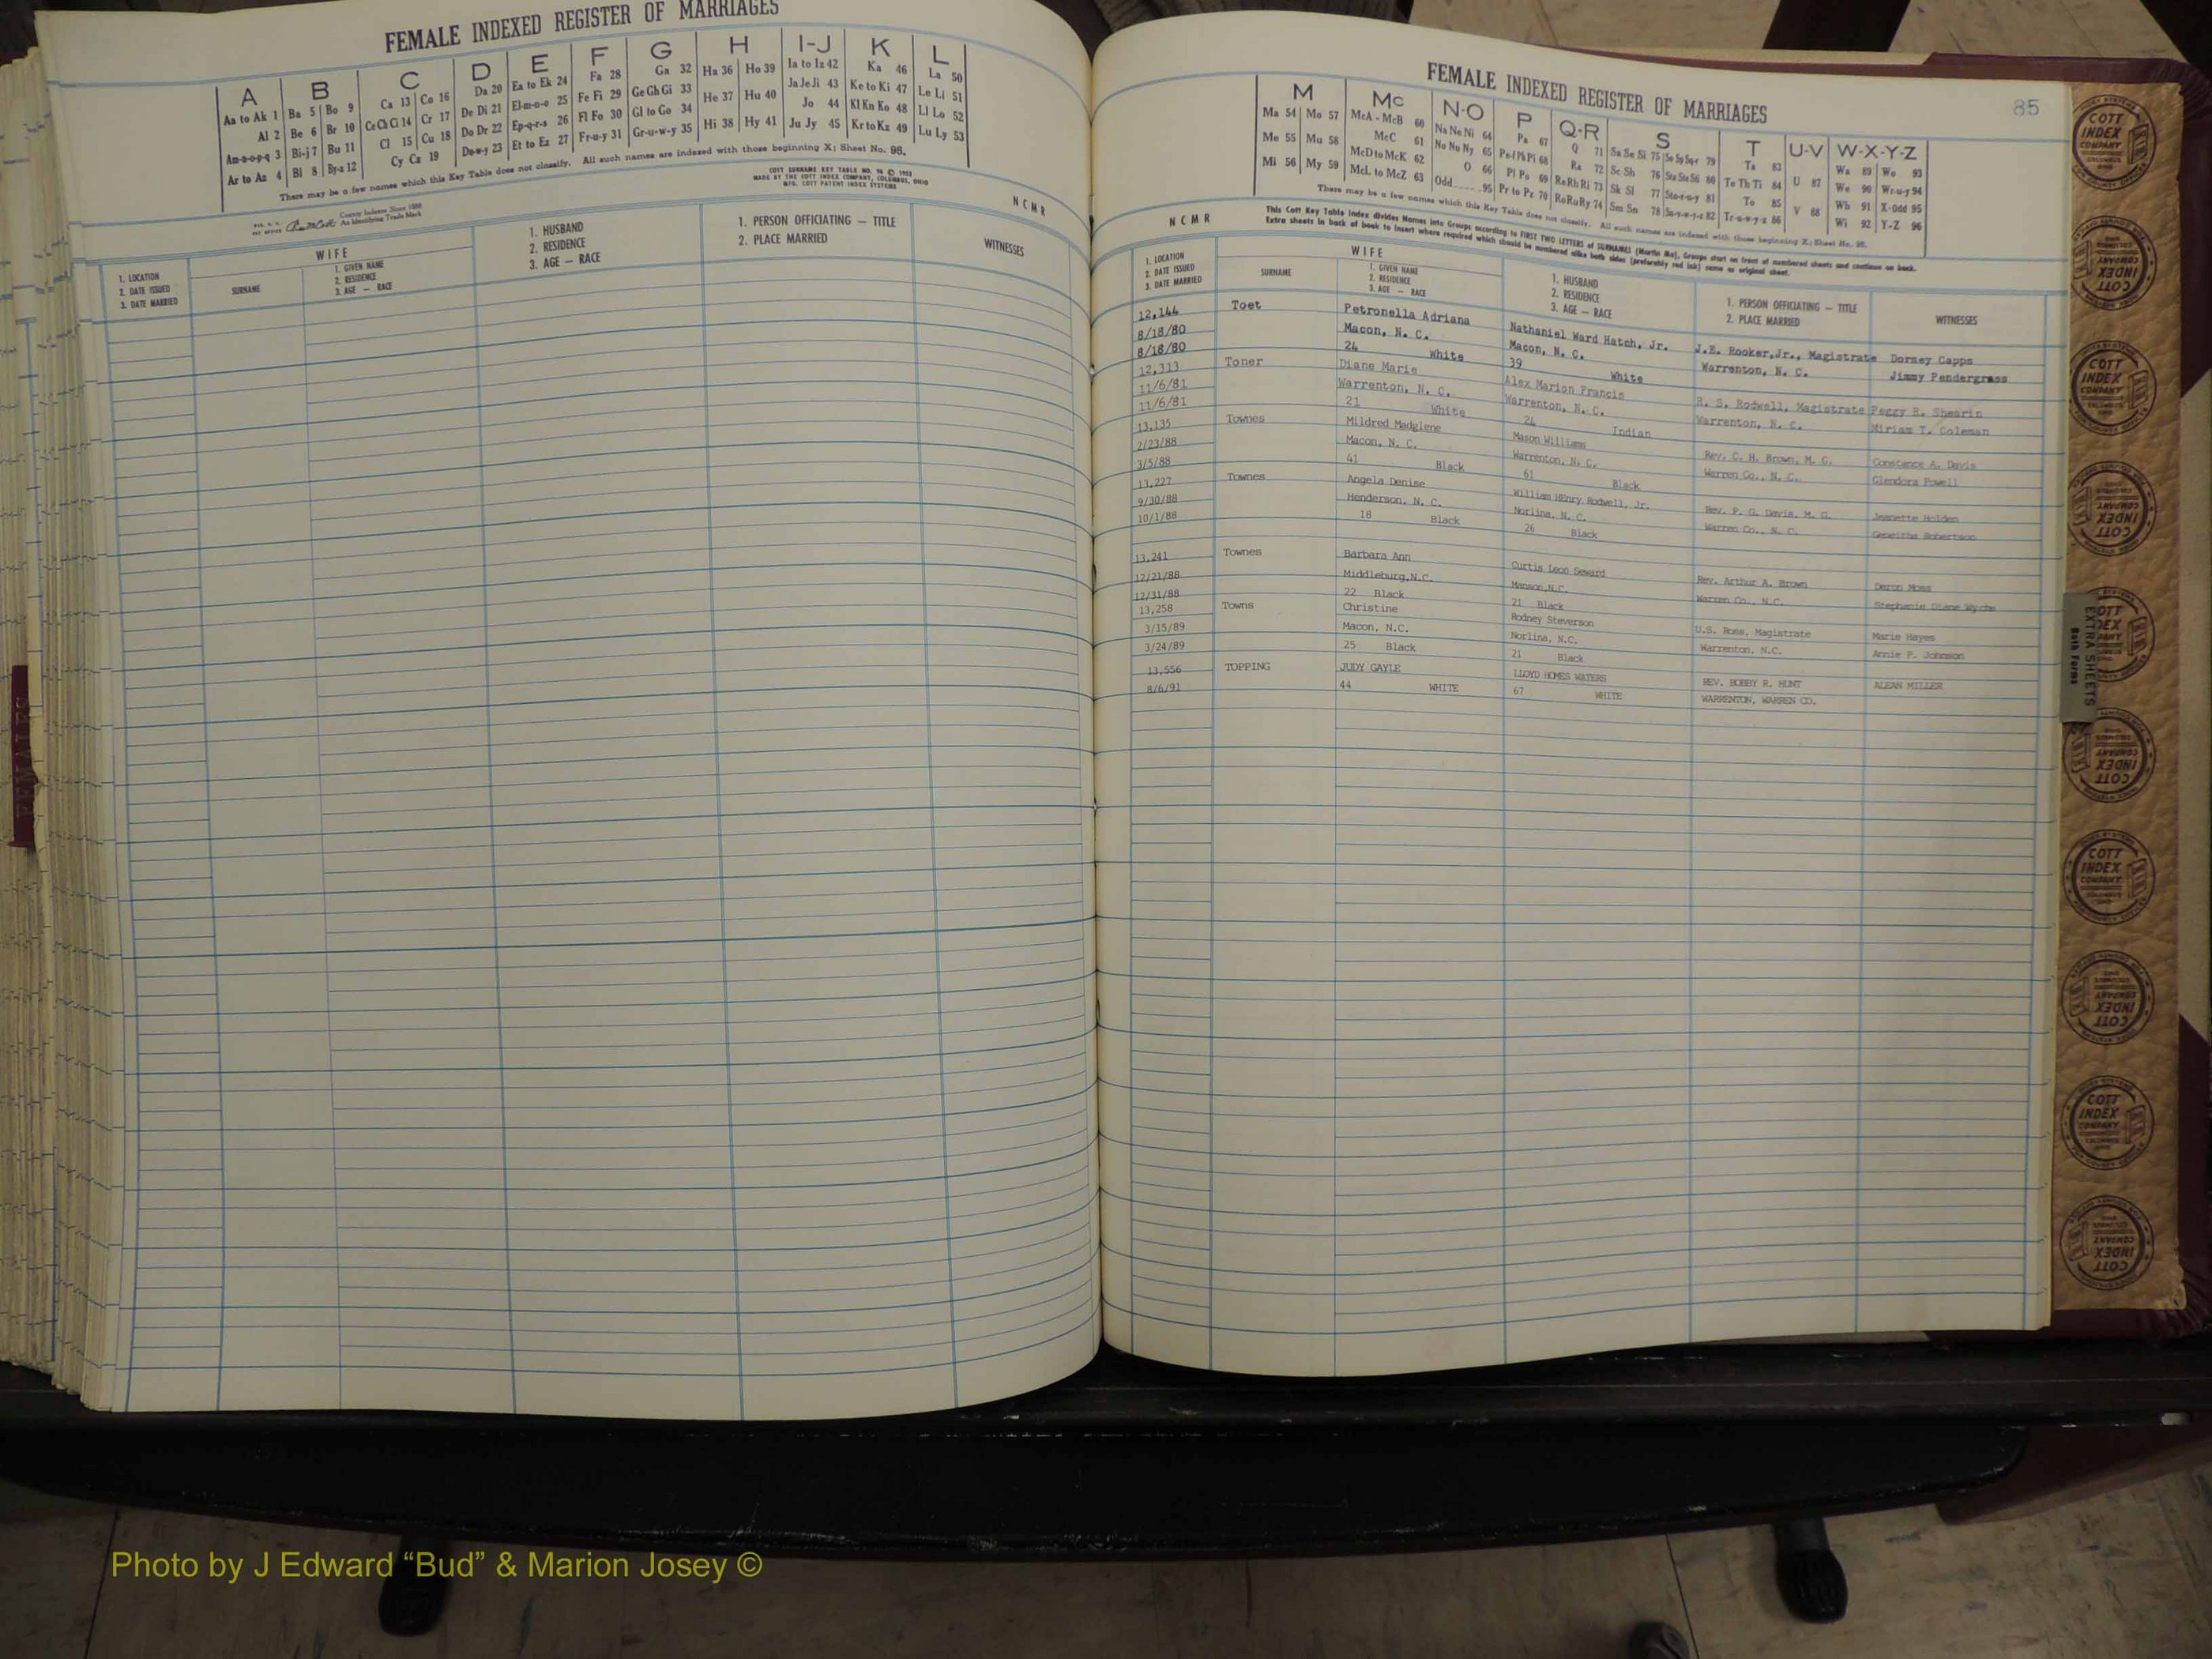 FEMALE INDEXED REGISTER OF MARRIAGES
A B C D E F G H I-J K L
Aa to Ak 1 Ba 5 Bo 9 Ca 13 Co 16 Da 20 Ea to Ek 24 Fa 28 Ga 32 Ha 36 Ho 39 Ia to Iz 42 Ka 46 La 50
Al 2 Be 6 Br 10 Ce Ch Ci 14 Cr 17 De Di 21 El-m-n-o 25 Fe Fi 29 Ge Gh Gi 33 He 37 Hu 40 Ja Je Ji 43 Ke to Ki 47 Le Li 51
Am-n-o-p-q 3 Bi-j 7 Bu 11 Cl 15 Cu 18 Do Dr 22 Ep-q-r-s 26 Fl Fo 30 Gl to Go 34 Hi 38 Hy 41 Jo 44 Kl Kn Ko 48 Ll Lo 52
Ar to Az 4 Bl 8 By-z 12 Cy Cz 19 Du-w-y 23 Et to Ez 27 Fr-u-y 31 Gr-u-w-y 35 Ju Jy 45 Kr to Kz 49 Lu Ly 53
There may be a few names which this Key Table does not classify. All such names are indexed with those beginning X; Sheet No. 95.
COTT SURNAME KEY TABLE NO. 96 © 1953
MADE BY THE COTT INDEX COMPANY, COLUMBUS, OHIO
MFG. COTT PATENT INDEX SYSTEMS
County Indexes Since 1888
An Identifying Trade Mark
N C M R
1. LOCATION
2. DATE ISSUED
3. DATE MARRIED
WIFE
SURNAME
1. GIVEN NAME
2. RESIDENCE
3. AGE — RACE
1. HUSBAND
2. RESIDENCE
3. AGE — RACE
1. PERSON OFFICIATING — TITLE
2. PLACE MARRIED
WITNESSES
FEMALE INDEXED REGISTER OF MARRIAGES
85
M Mc N-O P Q-R S T U-V W-X-Y-Z
Ma 54 Mo 57 McA - McB 60 Na Ne Ni 64 Pa 67 Q 71 Sa Se Si 75 So Sp Sq-r 79 Ta 83 Wa 89 Wo 93
Me 55 Mu 58 McC 61 No Nu Ny 65 Pe-f Ph Pi 68 Ra 72 Sc Sh 76 Sta Ste Sti 80 Te Th Ti 84 U 87 We 90 Wr-u-y 94
Mi 56 My 59 McD to McK 62 O 66 Pl Po 69 Re Rh Ri 73 Sk Sl 77 Sto-r-u-y 81 To 85 Wh 91 X-Odd 95
McL to McZ 63 Odd 95 Pr to Pz 70 Ro Ru Ry 74 Sm Sn 78 Su-v-w-y-z 82 Tr-u-w-y-z 86 V 88 Wi 92 Y-Z 96
There may be a few names which this Key Table does not classify. All such names are indexed with those beginning X; Sheet No. 95.
This Cott Key Table Index divides Names into Groups according to FIRST TWO LETTERS of SURNAMES (Martin Ma). Groups start on front of numbered sheets and continue on back.
Extra sheets in back of book to insert where required which should be numbered alike both sides (preferably red ink) same as original sheet.
N C M R
1. LOCATION
2. DATE ISSUED
3. DATE MARRIED
WIFE
SURNAME
1. GIVEN NAME
2. RESIDENCE
3. AGE — RACE
1. HUSBAND
2. RESIDENCE
3. AGE — RACE
1. PERSON OFFICIATING — TITLE
2. PLACE MARRIED
WITNESSES
12,144 Toet Petronella Adriana Nathaniel Ward Hatch, Jr. J.E. Rooker,Jr., Magistrate Dorsey Capps
8/18/80 Macon, N. C. Macon, N. C. Warrenton, N. C. Jimmy Pendergrass
8/18/80 24 White 39 White
12,313 Toner Diane Marie Alex Marion Francis R. S. Rodwell, Magistrate Peggy R. Shearin
11/6/81 Warrenton, N. C. Warrenton, N. C. Warrenton, N. C. Miriam T. Coleman
11/6/81 21 White 24 Indian
13,135 Townes Mildred Madglene Mason Williams Rev. C. H. Brown, M. G. Constance A. Davis
2/23/88 Macon, N. C. Warrenton, N. C. Warren Co., N. C. Glendora Powell
3/5/88 41 Black 61 Black
13,227 Townes Angela Denise William HEnry Rodwell, Jr. Rev. P. G. Davis, M. G. Jeanette Holden
9/30/88 Henderson, N. C. Norlina, N. C. Warren Co., N. C. Robertson
10/1/88 18 Black 26 Black
13,241 Townes Barbara Ann Curtis Leon Seward Rev. Arthur A. Brown Deron Moss
12/21/88 Middleburg,N.C. Manson,N.C. Warren Co., N.C. Stephanie Diane Wyche
12/31/88 22 Black 21 Black
13,258 Towns Christine Rodney Steverson U.S. Ross, Magistrate Marie Hayes
3/15/89 Macon, N.C. Norlina, N.C. Warrenton, N.C. Annie P. Johnson
3/24/89 25 Black 21 Black
13,556 TOPPING JUDY GAYLE LLOYD HOMES WATERS REV. BOBBY R. HUNT ALEAN MILLER
8/6/91 44 WHITE 67 WHITE WARRENTON, WARREN CO.
EXTRA SHEETS
Both Forms
COTT INDEX COMPANY
FEMALES
Photo by J Edward “Bud” & Marion Josey ©